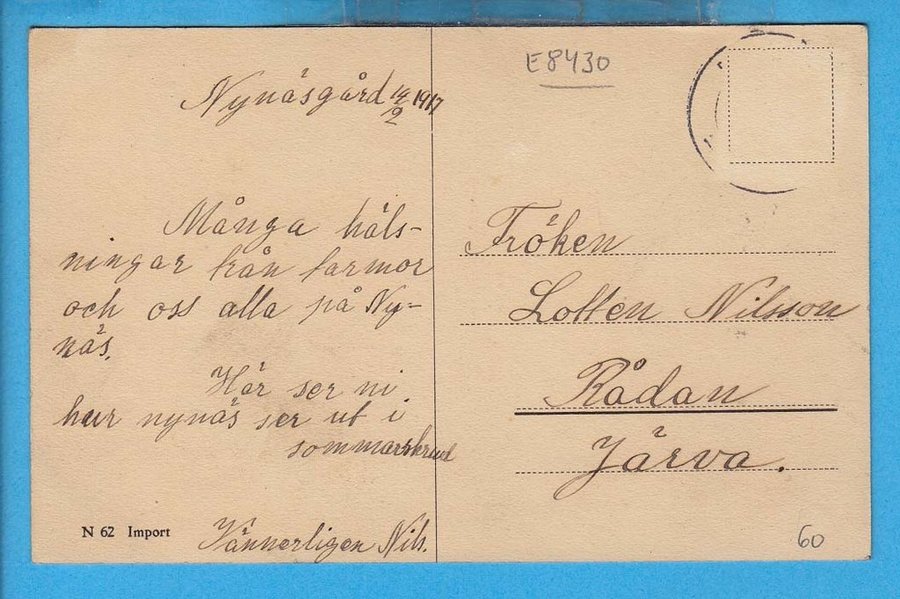 E8430
Nynäsgård 14/2 1917
Många häls-
ningar från farmor
och oss alla på Ny-
näs.
Här ser ni
hur nynäs ser ut i
sommarskrud
Vännerligen Nils.
N 62 Import
Fröken
Lotten Nilsson
Rådan
Järva.
60